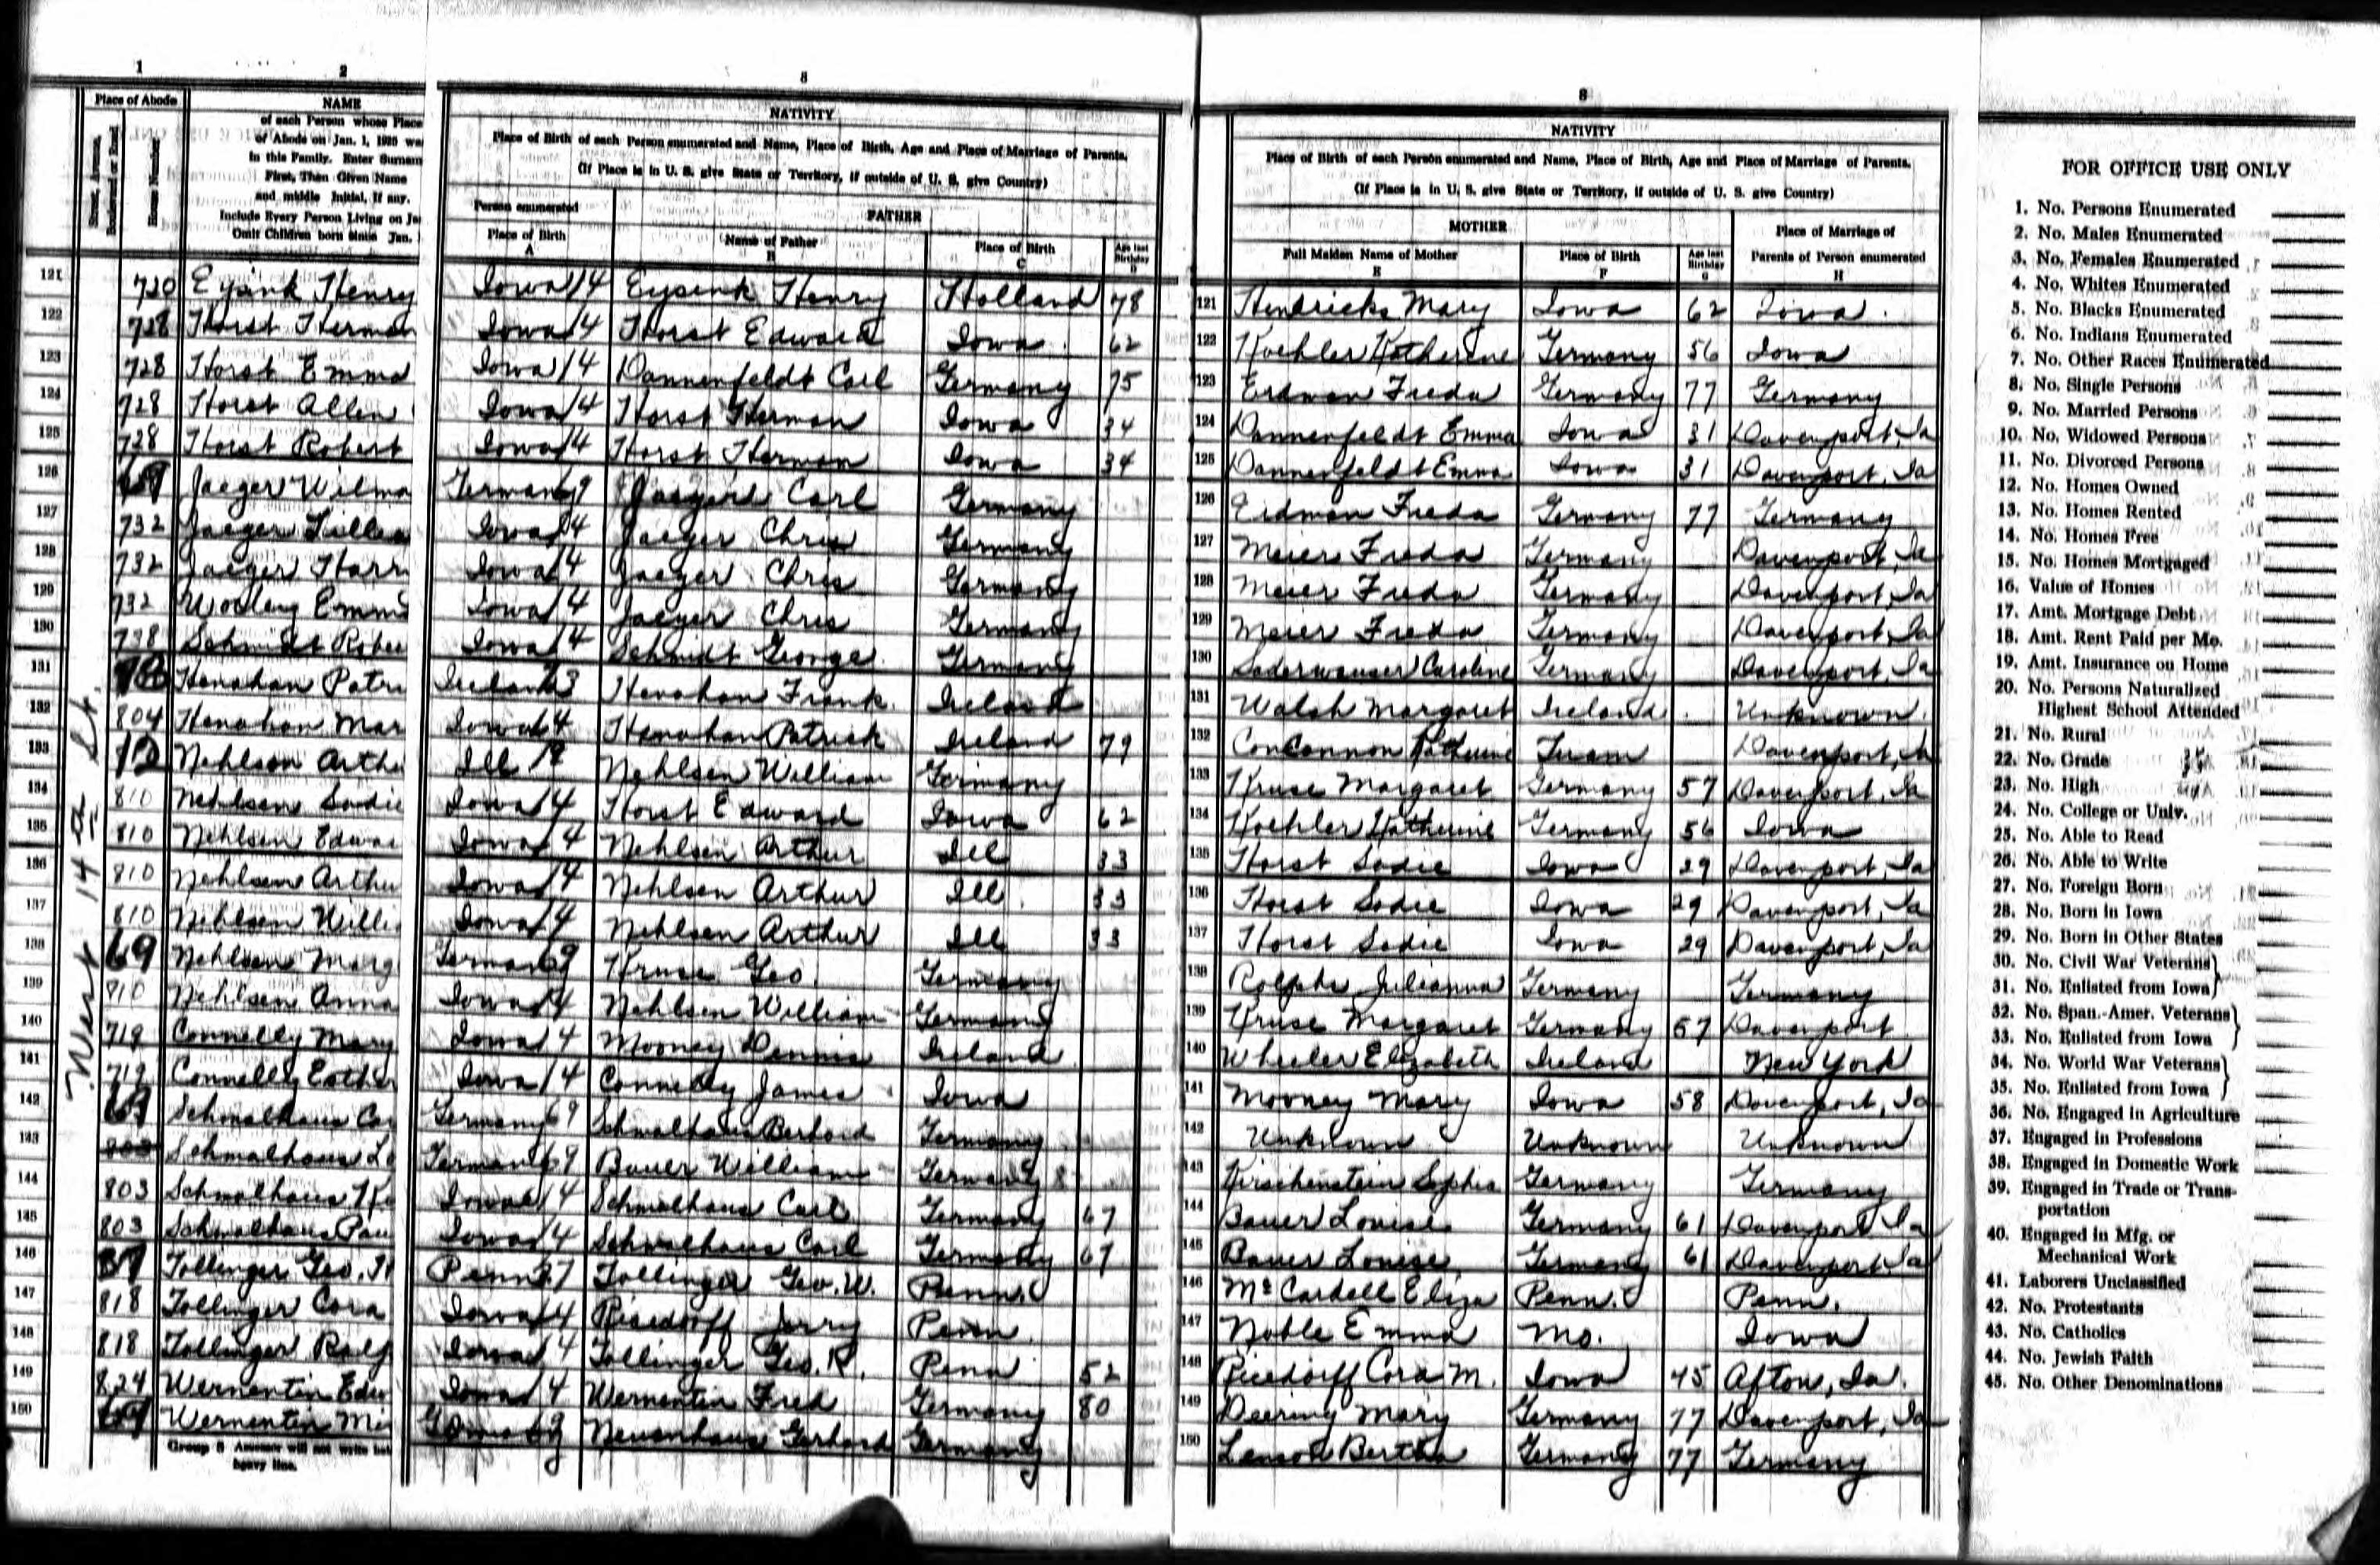 1 2 8 8
Place of Abode
Street, Avenue, Boulevard or Road
House Number
NAME
of each Person whose Place
of Abode on Jan. 1, 1925 wa
in this Family. Enter Surnam
First, Then Given Name
and middle Initial, if any.
Include Every Person Living on Ja
Omit Children born since Jan.
NATIVITY
Place of Birth of each Person enumerated and Name, Place of Birth, Age and Place of Marriage of Parents.
(If Place is in U. S. give State or Territory, if outside of U. S. give Country)
Person enumerated
FATHER
Place of Birth A
Name of Father B
Place of Birth C
Age last Birthday D
NATIVITY
Place of Birth of each Person enumerated and Name, Place of Birth, Age and Place of Marriage of Parents.
(If Place is in U. S. give State or Territory, if outside of U. S. give Country)
MOTHER
Full Maiden Name of Mother E
Place of Birth F
Age last Birthday G
Place of Marriage of
Parents of Person enumerated
H
West 14th St.
121 720 Eysink Henry Iowa 14 Eysink Henry Holland 78 121 Hendricks Mary Iowa 62 Iowa
122 728 Horst Herman Iowa 14 Horst Edward Iowa 62 122 Koehler Katherine Germany 56 Iowa
123 728 Horst Emma Iowa 14 Dannenfeldt Carl Germany 75 123 Erdman Freda Germany 77 Germany
124 728 Horst Allen Iowa 14 Horst Herman Iowa 34 124 Dannenfeldt Emma Iowa 31 Davenport, Ia
125 728 Horst Robert Iowa 14 Horst Herman Iowa 34 125 Dannenfeldt Emma Iowa 31 Davenport, Ia
126 69 Jaeger Wilma Germany 69 Carl Germany 126 Erdman Freda Germany 77 Germany
127 732 Jaeger Lillea Iowa 14 Jaeger Chris Germany 127 Meier Freda Germany Davenport, Ia
128 732 Jaeger Harr Iowa 14 Jaeger Chris Germany 128 Meier Freda Germany Davenport, Ia
129 732 Emma Iowa 14 Jaeger Chris Germany 129 Meier Freda Germany Davenport, Ia
130 738 Schmidt Rober Iowa 14 Schmidt George Germany 130 Caroline Germany Davenport, Ia
131 Hanahan Patri Ireland 73 Hanahan Frank Ireland 131 Walsh Margaret Ireland Unknown
132 804 Hanahan Mar Iowa 14 Hanahan Patrick Ireland 79 132 Concannon Katherine Davenport, Ia
133 12 Nehlsen Arthu Ill 12 Nehlsen William Germany 133 Kruse Margaret Germany 57 Davenport, Ia
134 810 Nehlsen Sadie Iowa 14 Horst Edward Iowa 62 134 Koehler Katherine Germany 56 Iowa
135 810 Nehlsen Edwar Iowa 14 Nehlsen Arthur Ill 33 135 Horst Sadie Iowa 29 Davenport, Ia
136 810 Nehlsen Arthu Iowa 14 Nehlsen Arthur Ill 33 136 Horst Sadie Iowa 29 Davenport, Ia
137 810 Nehlsen Willi Iowa 14 Nehlsen Arthur Ill 33 137 Horst Sadie Iowa 29 Davenport, Ia
138 69 Nehlsen Marg Germany 69 Kruse Geo. Germany 138 Rolphs Julianna Germany Germany
139 810 Nehlsen Anna Iowa 14 Nehlsen William Germany 139 Kruse Margaret Germany 57 Davenport
140 719 Connelly Mary Iowa 14 Mooney Dennis Ireland 140 Wheeler Elizabeth Ireland New York
141 719 Connelly Esther Iowa 14 Connelly James Iowa 141 Mooney Mary Iowa 58 Davenport, Ia
142 69 Schmalhaus Car Germany 69 Schmalhaus Germany 142 Unknown Unknown Unknown
143 803 Schmalhaus Lo Germany 69 Bauer William Germany 143 Kirschenstein Sophia Germany Germany
144 803 Schmalhaus Iowa 14 Schmalhaus Carl Germany 67 144 Bauer Louise Germany 61 Davenport Ia
145 803 Schmalhaus Pau Iowa 14 Schmalhaus Carl Germany 67 145 Bauer Louise Germany 61 Davenport, Ia
146 37 Tollinger Geo. Penn 37 Tollinger Geo. W. Penn. 146 McCardell Eliza Penn. Penn.
147 818 Tollinger Cora Iowa 14 Risedorff Jerry Penn. 147 Noble Emma Mo. Iowa
148 818 Tollinger Ralp Iowa 14 Tollinger Geo. R. Penn 52 148 Risedorff Cora M. Iowa 45 Afton, Ia.
149 824 Wernentin Edw Iowa 14 Wernentin Fred Germany 80 149 Deering Mary Germany 77 Davenport, Ia
150 69 Wernentin Mi Germany 69 Neuenhaus Gerhard Germany 150 Bertha Germany 77 Germany
Group 8 Assessor will not write bel
heavy line.
FOR OFFICE USE ONLY
1. No. Persons Enumerated
2. No. Males Enumerated
3. No. Females Enumerated
4. No. Whites Enumerated
5. No. Blacks Enumerated
6. No. Indians Enumerated
7. No. Other Races Enumerated
8. No. Single Persons
9. No. Married Persons
10. No. Widowed Persons
11. No. Divorced Persons
12. No. Homes Owned
13. No. Homes Rented
14. No. Homes Free
15. No. Homes Mortgaged
16. Value of Homes
17. Amt. Mortgage Debt
18. Amt. Rent Paid per Mo.
19. Amt. Insurance on Home
20. No. Persons Naturalized
Highest School Attended
21. No. Rural
22. No. Grade
23. No. High
24. No. College or Univ.
25. No. Able to Read
26. No. Able to Write
27. No. Foreign Born
28. No. Born in Iowa
29. No. Born in Other States
30. No. Civil War Veterans
31. No. Enlisted from Iowa
32. No. Span.-Amer. Veterans
33. No. Enlisted from Iowa
34. No. World War Veterans
35. No. Enlisted from Iowa
36. No. Engaged in Agriculture
37. Engaged in Professions
38. Engaged in Domestic Work
39. Engaged in Trade or Trans-
portation
40. Engaged in Mfg. or
Mechanical Work
41. Laborers Unclassified
42. No. Protestants
43. No. Catholics
44. No. Jewish Faith
45. No. Other Denominations